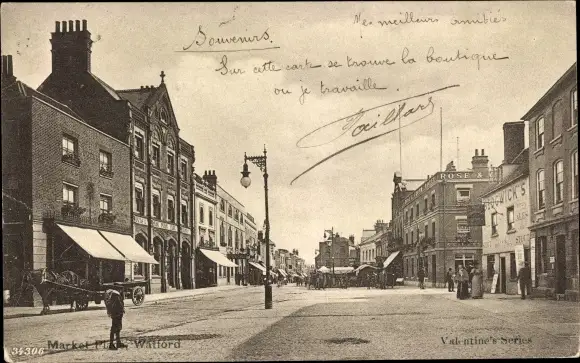 Souvenirs.
Mes meilleurs amitiés
Sur cette carte se trouve la boutique
ou je travaille.
ROSE &
34306 Market Place, Watford
Valentine's Series